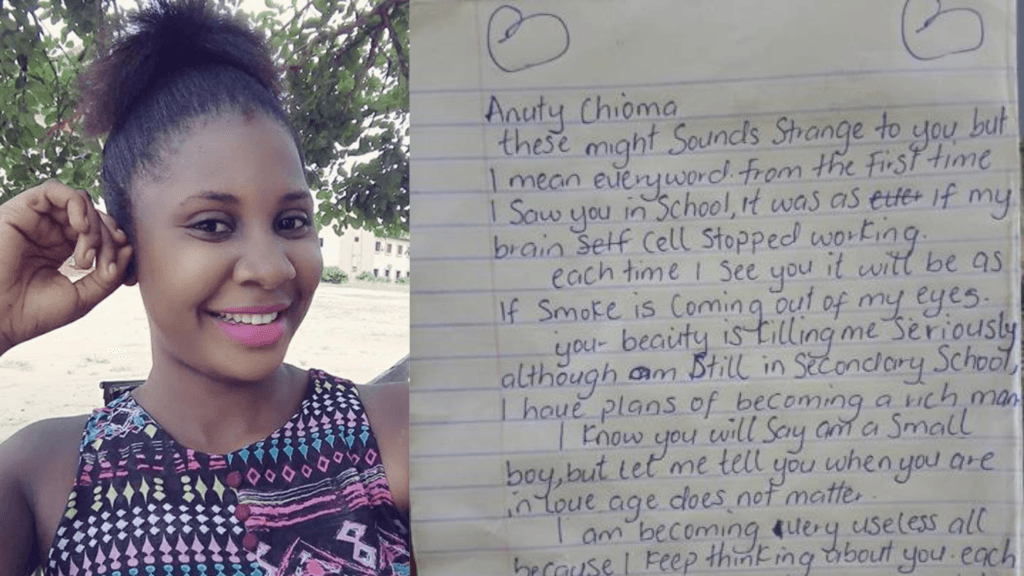 Anuty Chioma
these might Sounds Strange to you but
I mean everyword. from the First time
I Saw you in School, it was as if my
brain Self Cell Stopped working.
each time I See you it will be as
If Smoke is Coming out of my eyes.
your beauty is killing me Seriously
although am Still in Secondary School,
I have plans of becoming a rich man
I know you will Say am a Small
boy, but let me tell you when you are
in love age does not matter.
I am becoming very useless all
because I keep thinking about you. each